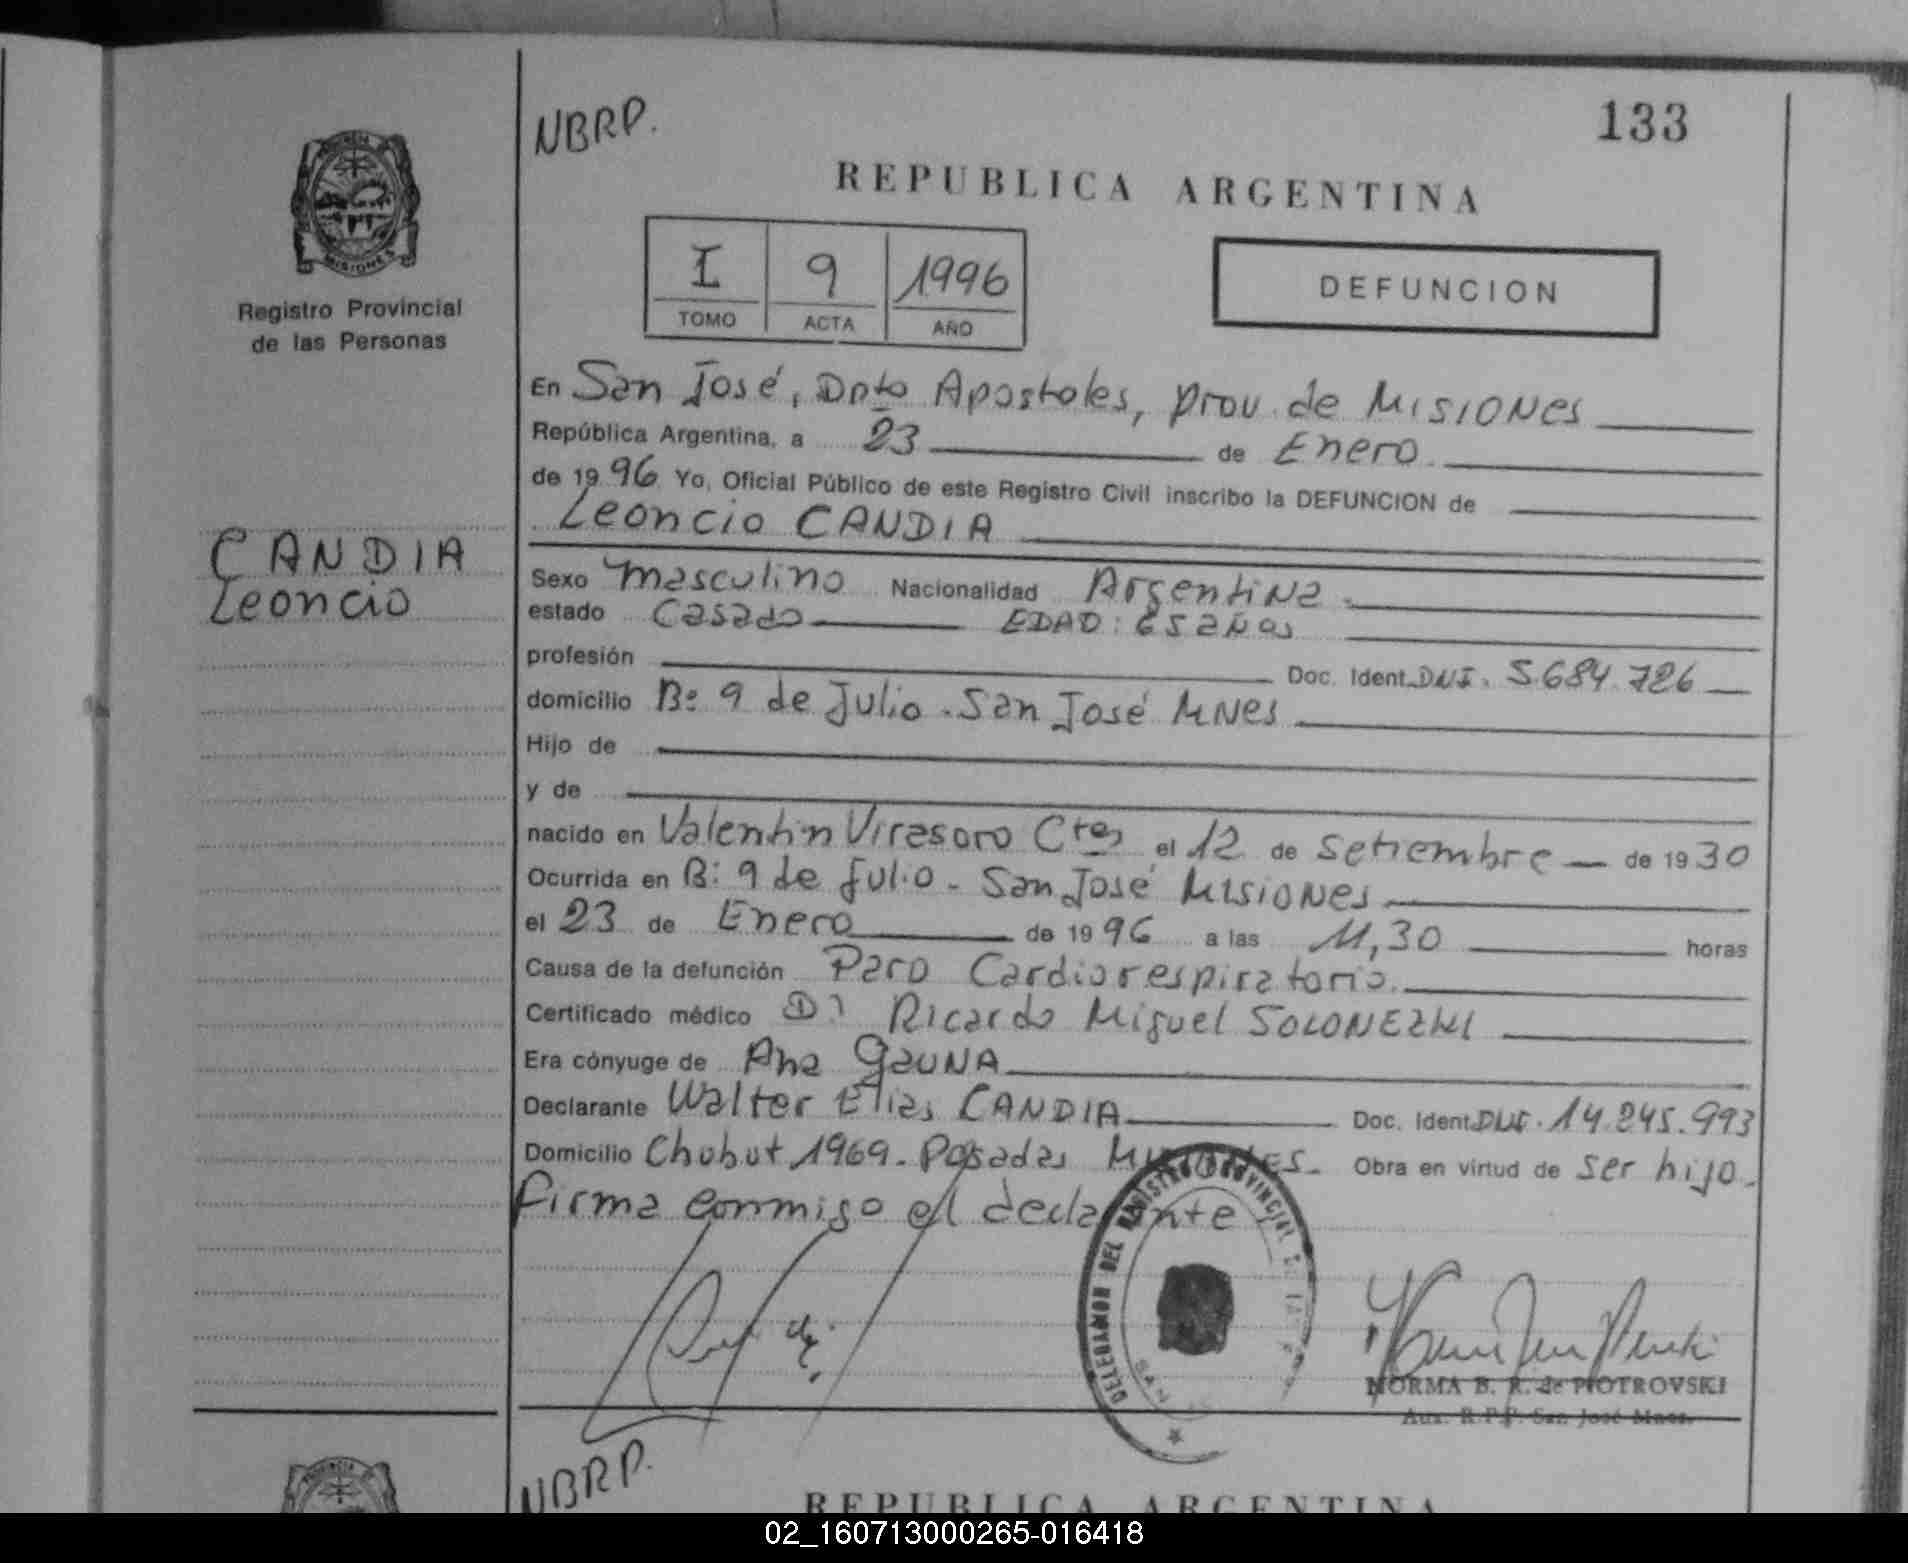 NBRP.
133
REPUBLICA ARGENTINA
PROVINCIA
MISIONES
Registro Provincial
de las Personas
I 9 1996
TOMO ACTA AÑO
DEFUNCION
En San José, Dpto Apostoles, prov. de Misiones
República Argentina, a 23 de Enero.
de 1996 Yo, Oficial Público de este Registro Civil inscribo la DEFUNCION de
Leoncio CANDIA
CANDIA
Leoncio
Sexo masculino Nacionalidad Argentina.
estado Casado EDAD: 65 años
profesión Doc. Ident. DNI. 5.684.726
domicilio B: 9 de Julio. San José Mnes
Hijo de
y de
nacido en Valentin Virasoro Ctes el 12 de Setiembre de 1930
Ocurrida en B: 9 de Julio - San José Misiones
el 23 de Enero de 1996 a las 11,30 horas
Causa de la defunción Paro Cardiorespiratorio.
Certificado médico D: Ricardo Miguel SOLONEZKI
Era cónyuge de Ana Gauna
Declarante Walter Elias CANDIA Doc. Ident. DNI. 14.245.993
Domicilio Chubut 1969. Posadas Misiones. Obra en virtud de ser hijo.
Firma conmigo el declarante
DELEGACION DEL REGISTRO PROVINCIAL
SAN
NORMA B. R. de PIOTROVSKI
Aux. R.P.P. San José Mnes.
NBRP.
REPUBLICA ARGENTINA
02_160713000265-016418